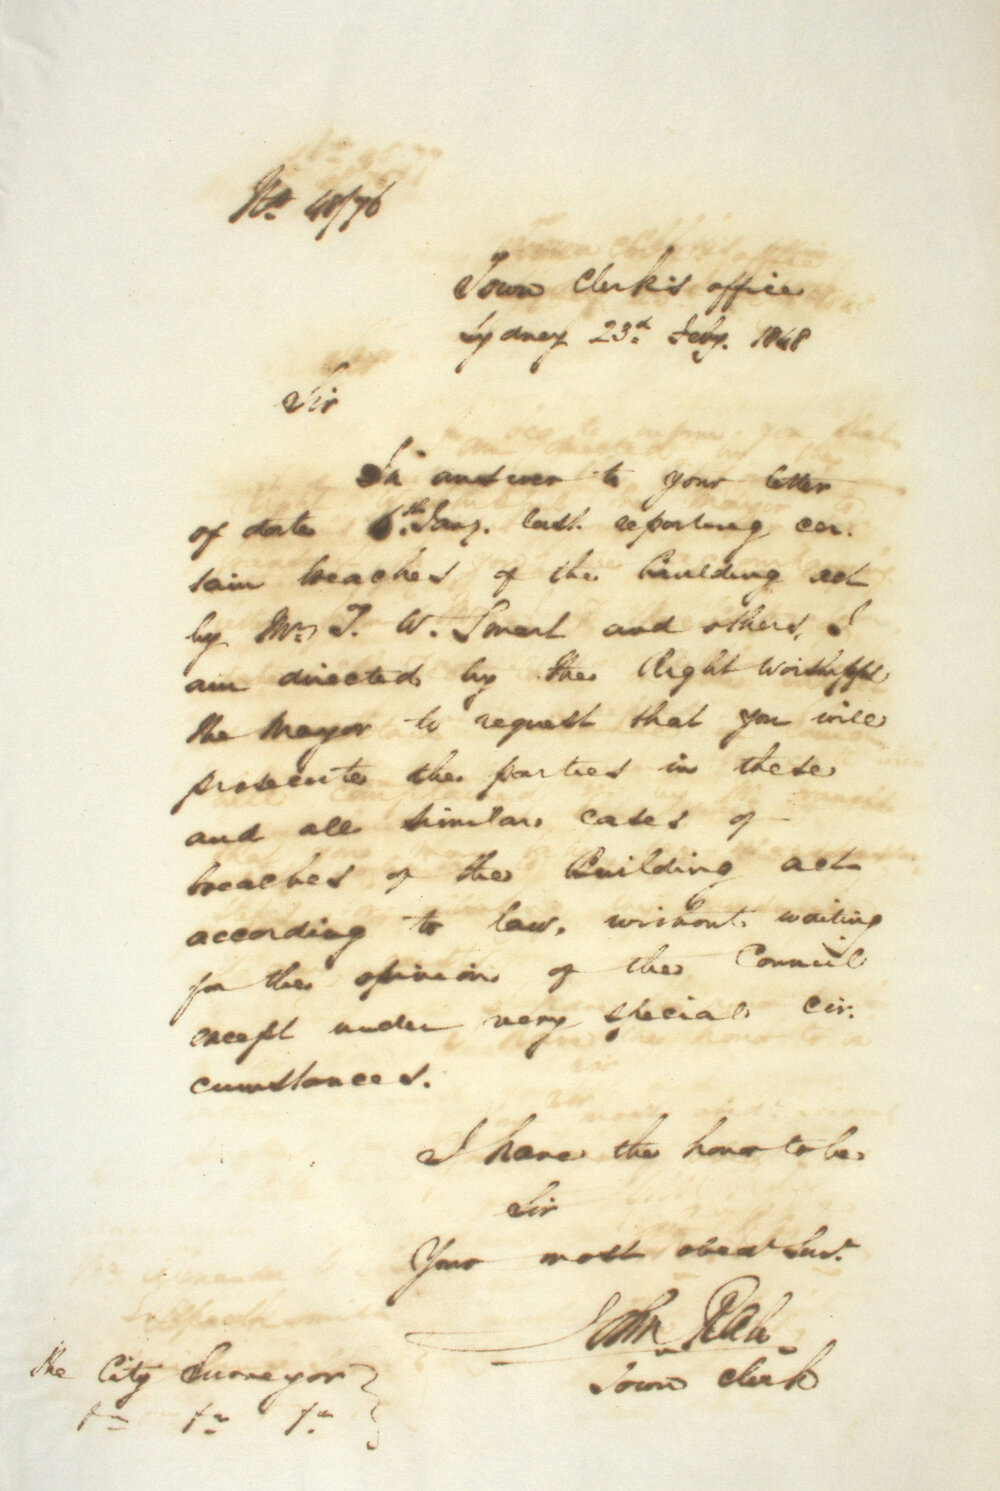 No. 48/76
Town Clerk's office
Sydney 23d. Feby. 1848
Sir
In answer to your letter
of date 6th. Jany. last reporting cer.
tain breaches of the Building act
by Mr. T. W. Smart and others, I
am directed by the Right Worshipful
the Mayor to request that you will
prosecute the parties in these
and all similar cases of
breaches of the Building act
according to law, without waiting
for the opinion of the Council
except under very special cir.
cumstances.
I have the honor to be
Sir
Your most obedt. Servt.
John Rae
Town Clerk
The City Surveyor